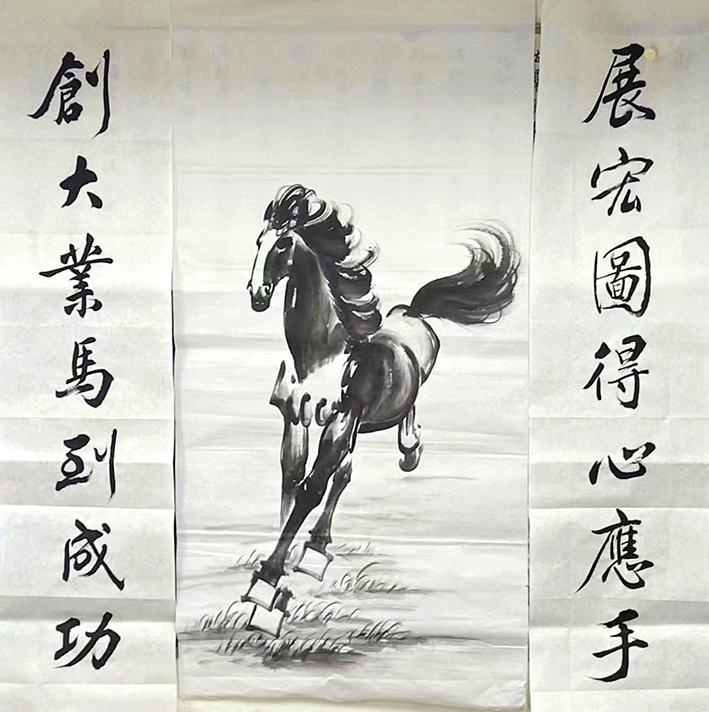 展宏圖得心應手
創大業馬到成功